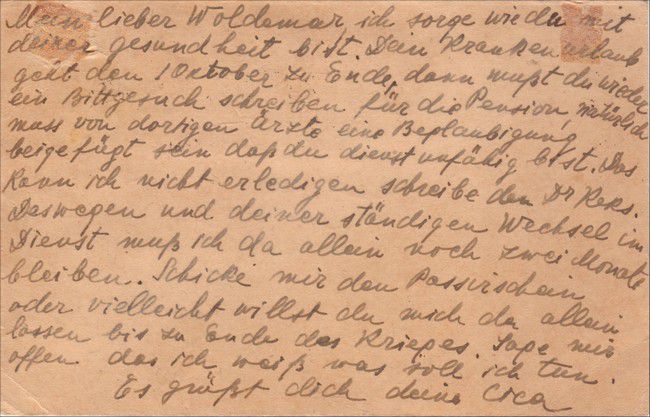 Mein lieber Woldemar ich sorge wie du mit
deiner gesundheit bist. Dein Krankenurlaub
geht den 1 Oktober zu Ende, dann mußt du wieder
ein Bittgesuch schreiben für die Pension, natürlich
muss von dortigen ärzte eine Beglaubigung
beigefügt sein daß du dienstunfähig bist. Das
kann ich nicht erledigen schreibe dem Dr
Deswegen und deiner ständigen Wechsel im
Dienst muß ich da allein noch zwei Monate
bleiben.. Schicke mir den Passirschein
oder vielleicht willst du mich da allein
lassen bis zu Ende des Krieges. Sage mir
offen das ich weiß was soll ich tun.
Es grüßt dich deine Cica